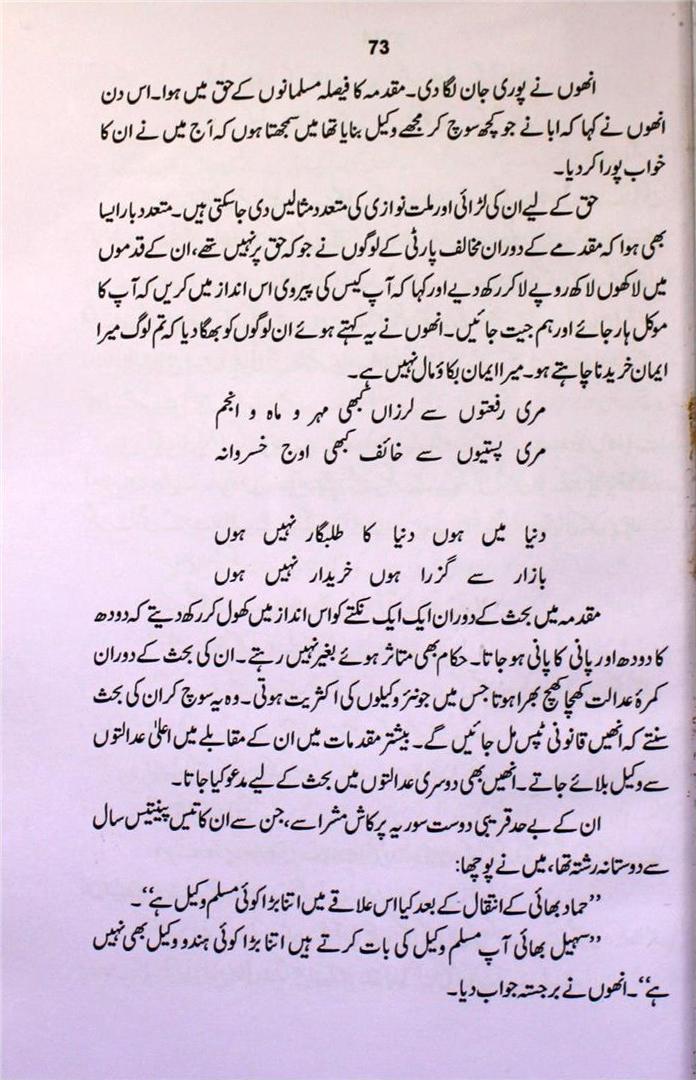 73
انھوں نے پوری جان لگا دی۔ مقدمہ کا فیصلہ مسلمانوں کے حق میں ہوا۔ اس دن
انھوں نے کہا کہ ابا نے جو کچھ سوچ کر مجھے وکیل بنایا تھا میں سمجھتا ہوں کہ آج میں نے ان کا
خواب پورا کر دیا۔
حق کے لیے ان کی لڑائی اور ملت نوازی کی متعدد مثالیں دی جا سکتی ہیں۔ متعدد بار ایسا
بھی ہوا کہ مقدمے کے دوران مخالف پارٹی کے لوگوں نے جو کہ حق پر نہیں تھے، ان کے قدموں
میں لاکھوں لاکھ روپے لا کر رکھ دیے اور کہا کہ آپ کیس کی پیروی اس انداز میں کریں کہ آپ کا
موکل ہار جائے اور ہم جیت جائیں۔ انھوں نے یہ کہتے ہوئے ان لوگوں کو بھگا دیا کہ تم لوگ میرا
ایمان خریدنا چاہتے ہو۔ میرا ایمان بکاؤ مال نہیں ہے۔
مری رفعتوں سے لرزاں کبھی مہر و ماہ و انجم
مری پستیوں سے خائف کبھی اوج خسروانہ
دنیا میں ہوں دنیا کا طلبگار نہیں ہوں
بازار سے گزرا ہوں خریدار نہیں ہوں
مقدمہ میں بحث کے دوران ایک ایک نکتے کو اس انداز میں کھول کر رکھ دیتے کہ دودھ
کا دودھ اور پانی کا پانی ہو جاتا۔ حکام بھی متاثر ہوئے بغیر نہیں رہتے۔ ان کی بحث کے دوران
کمرۂ عدالت کھچا کھچ بھرا ہوتا جس میں جونئر وکیلوں کی اکثریت ہوتی۔ وہ یہ سوچ کر ان کی بحث
سنتے کہ انھیں قانونی ٹپس مل جائیں گے۔ بیشتر مقدمات میں ان کے مقابلے میں اعلیٰ عدالتوں
سے وکیل بلائے جاتے۔ انھیں بھی دوسری عدالتوں میں بحث کے لیے مدعو کیا جاتا۔
ان کے بے حد قریبی دوست سوریہ پرکاش مشرا سے، جن سے ان کا تیس پینتیس سال
سے دوستانہ رشتہ تھا، میں نے پوچھا:
”حماد بھائی کے انتقال کے بعد کیا اس علاقے میں اتنا بڑا کوئی مسلم وکیل ہے“۔
”سہیل بھائی آپ مسلم وکیل کی بات کرتے ہیں اتنا بڑا کوئی ہندو وکیل بھی نہیں
ہے“۔ انھوں نے برجستہ جواب دیا۔